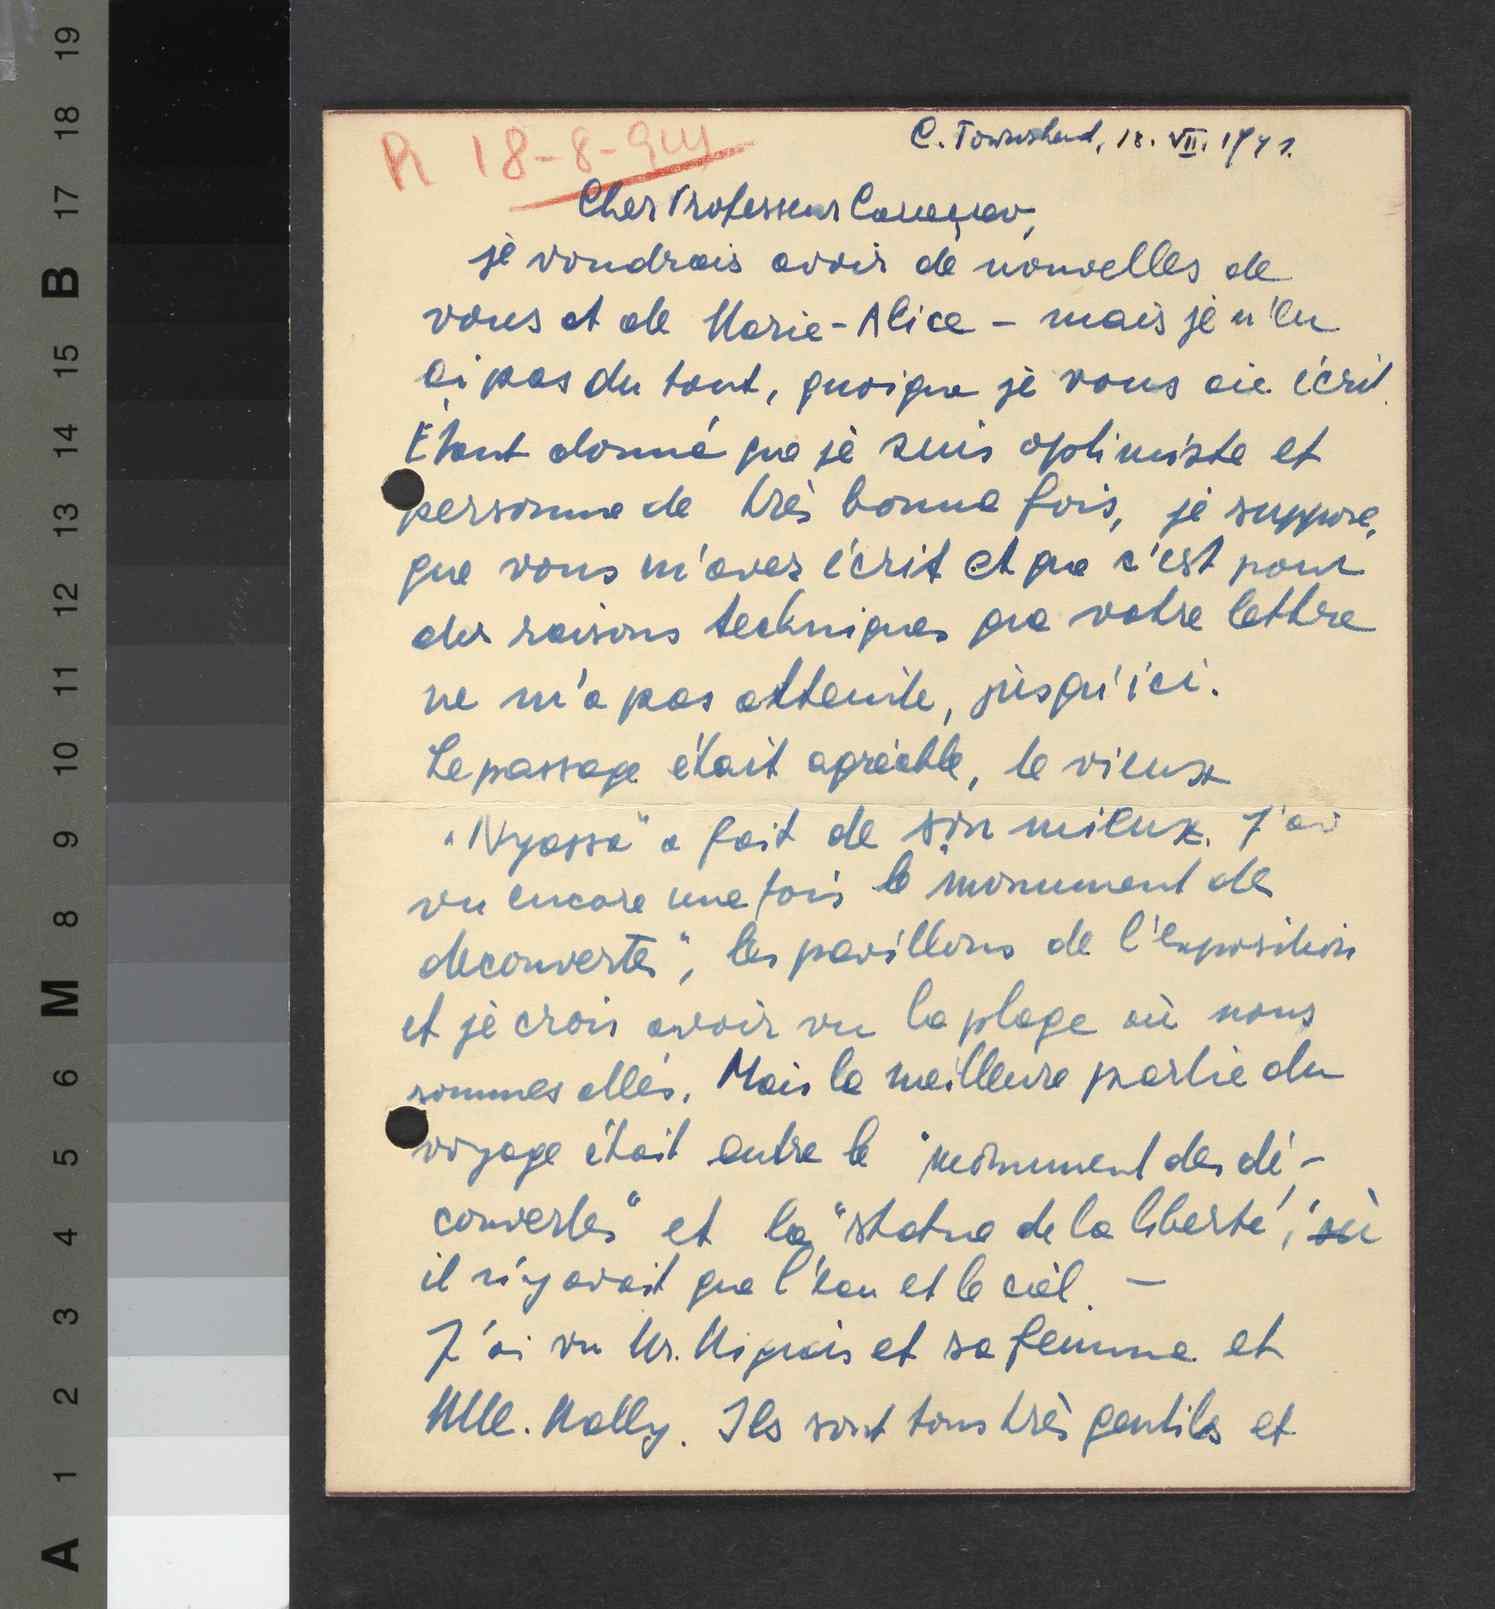 R 18-8-941
C. Townshend, 18. VII. 1941.
Cher Professeur
je voudrais avoir de nouvelles de
vous et de Marie-Alice - mais je n'en
ai pas du tout, quoique je vous aie écrit.
Étant donné que je suis optimiste et
personne de très bonne fois, je suppose,
que vous m'avez écrit et que c'est pour
des raisons techniques que votre lettre
ne m'a pas atteinte, jusqu'ici.
Le passage était agréable, le vieux
"Nyassa" a fait de son mieux. J'ai
vu encore une fois le "monument de
decouvertes", les pavillons de l'exposition
et je crois avoir vu la plage où nous
sommes allés. Mais la meilleure partie du
voyage était entre le "monument des dé-
couvertes" et la "statue de la liberté", où
il n'y avait que l'eau et le ciel. —
J'ai vu Mr. et sa femme et
Mlle. Molly. Ils sont tous très gentils et
A 1 2 3 4 5 6 M 8 9 10 11 12 13 14 15 B 17 18 19